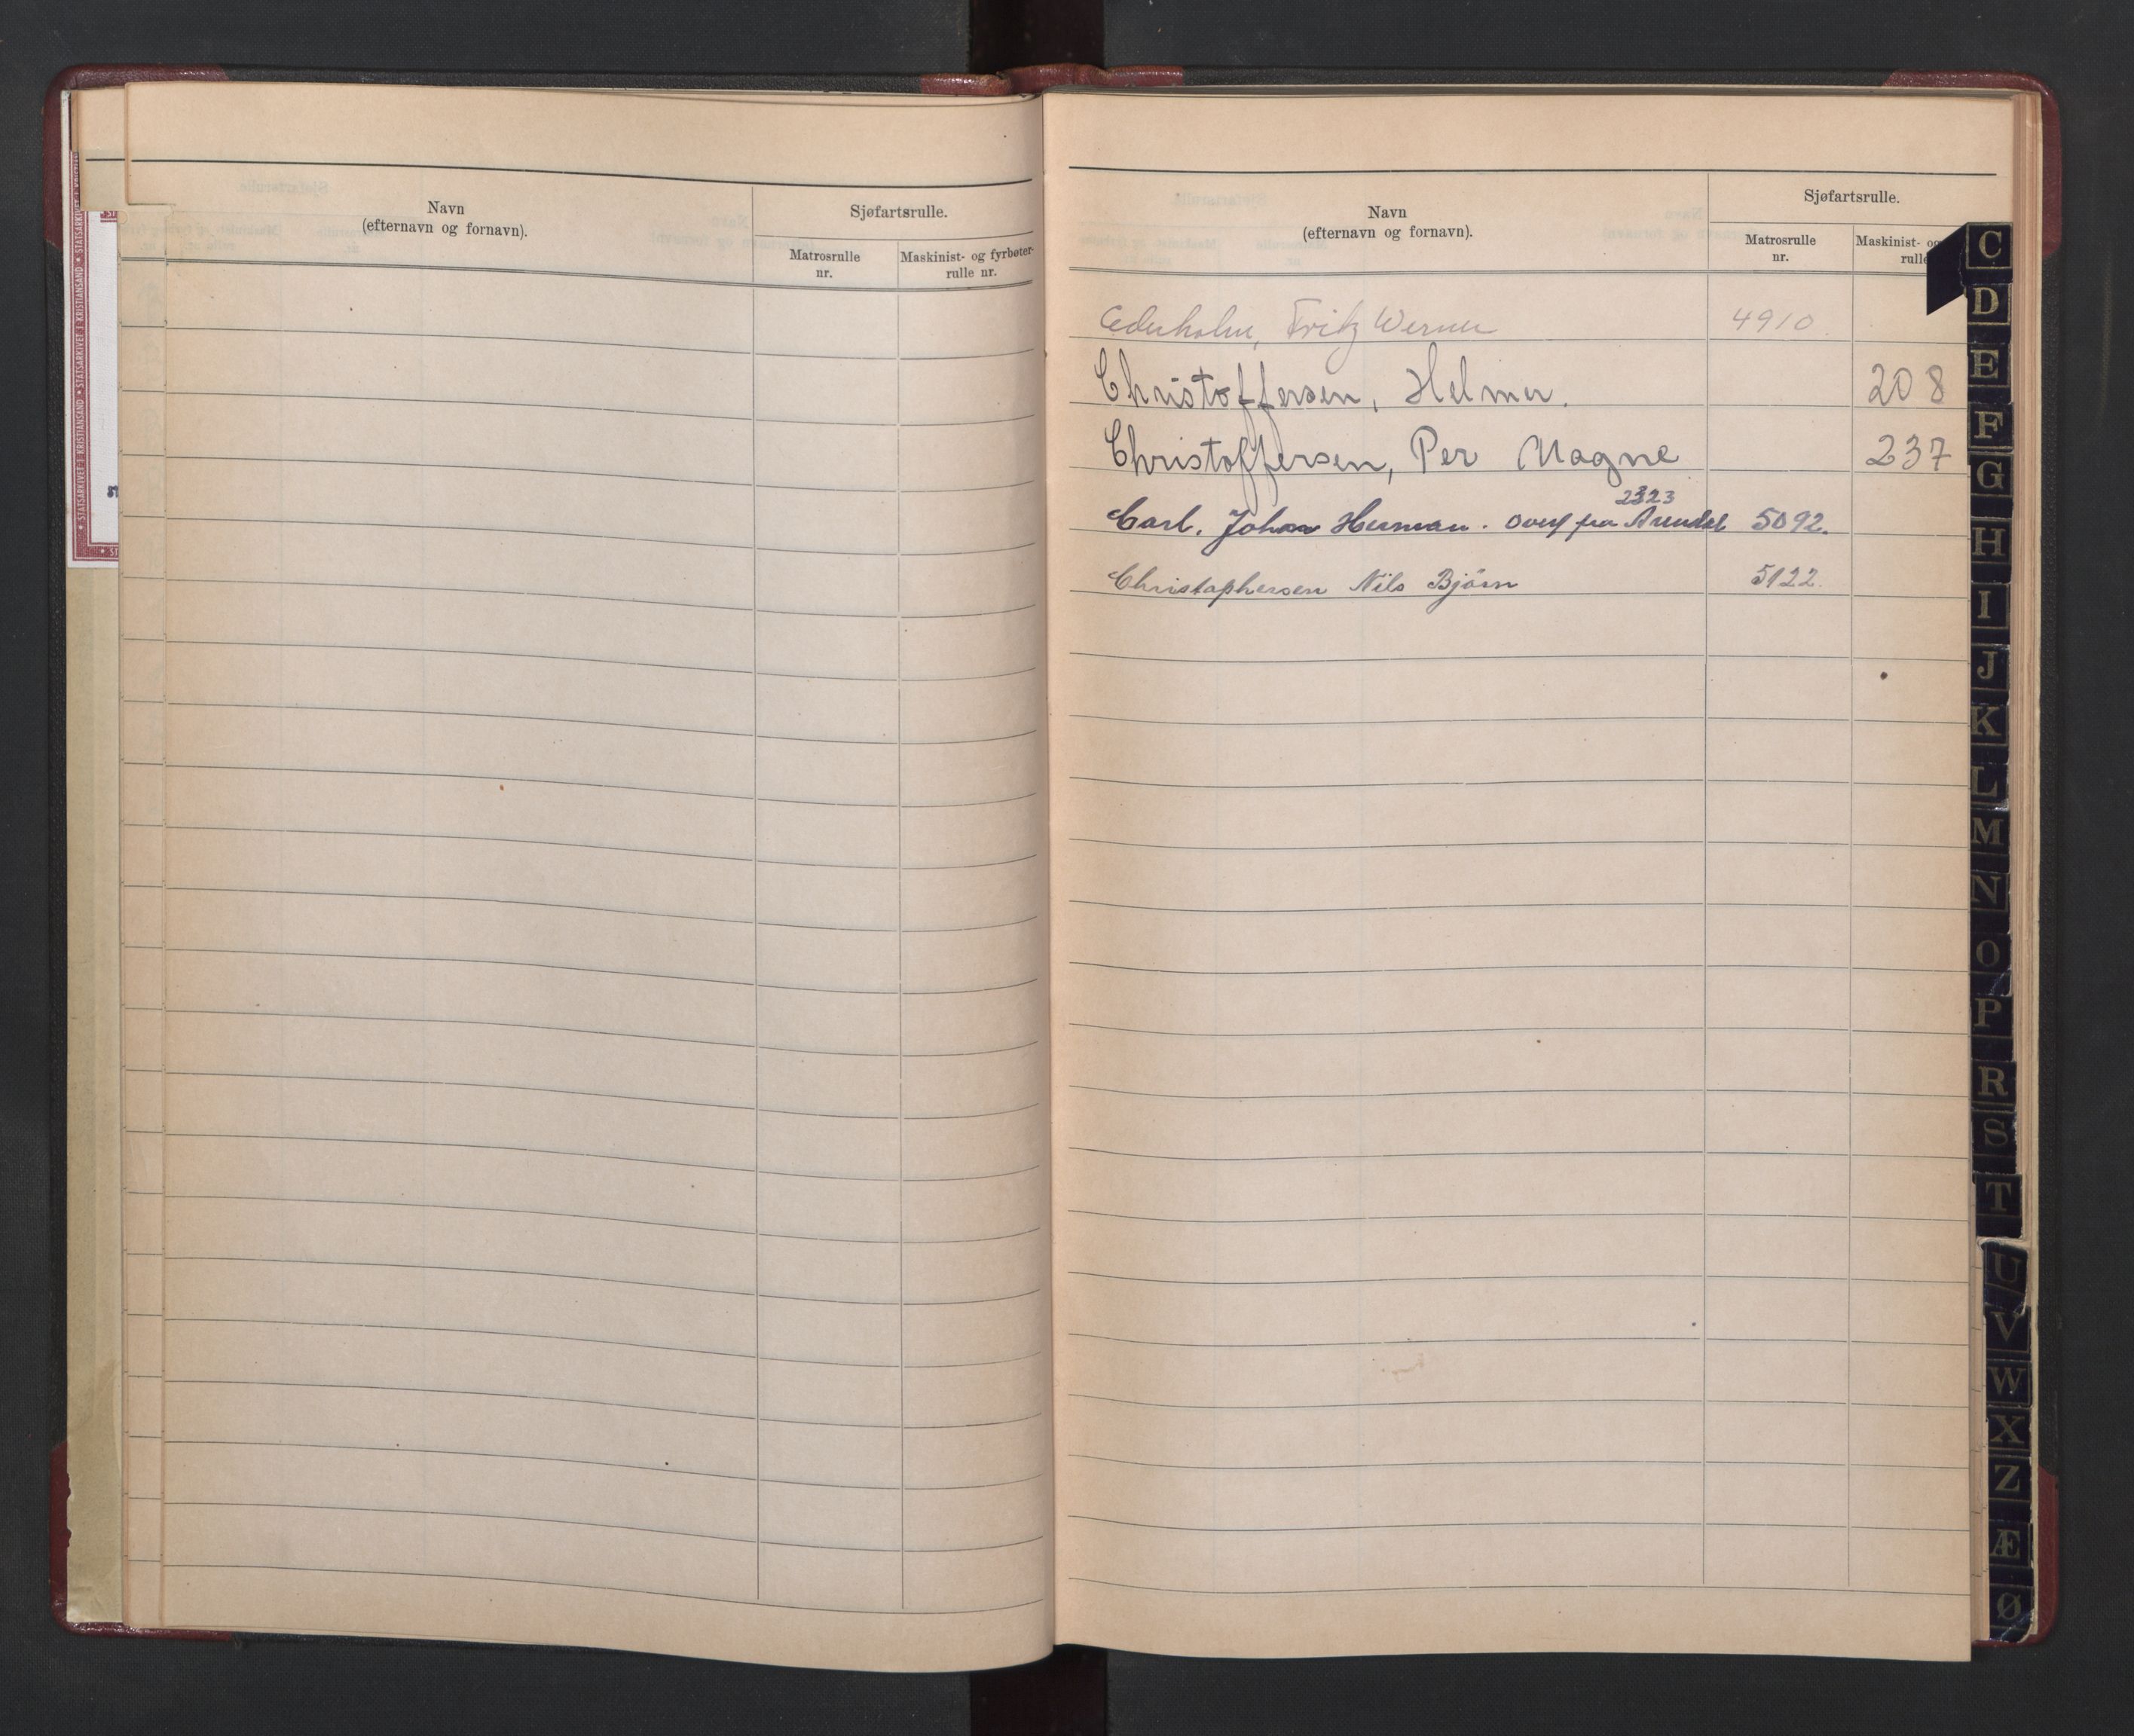 Navn
(efternavn og fornavn).
Sjøfartsrulle.
Matrosrulle
nr.
Maskinist- og fyrbøter-
rulle nr.
STATSARKIVET I KRISTIANSAND ★ STATSARKIVET I KRISTIANSAND ★ STATSARKIVET I KRISTIANSAND
Navn
(efternavn og fornavn).
Sjøfartsrulle.
Matrosrulle
nr.
Maskinist- og
rulle
Cederholm, Fritz Werner 4910
Christoffersen, Helmer. 208
Christoffersen, Per Magne 237
2323
Carl, Johan Herman. overf fra Arendal 5092.
Christophersen Nils Bjørn 5122.
C
D
E
F
G
H
I
J
K
L
M
N
O
P
R
S
T
U
V
W
X
Z
Æ
Ø